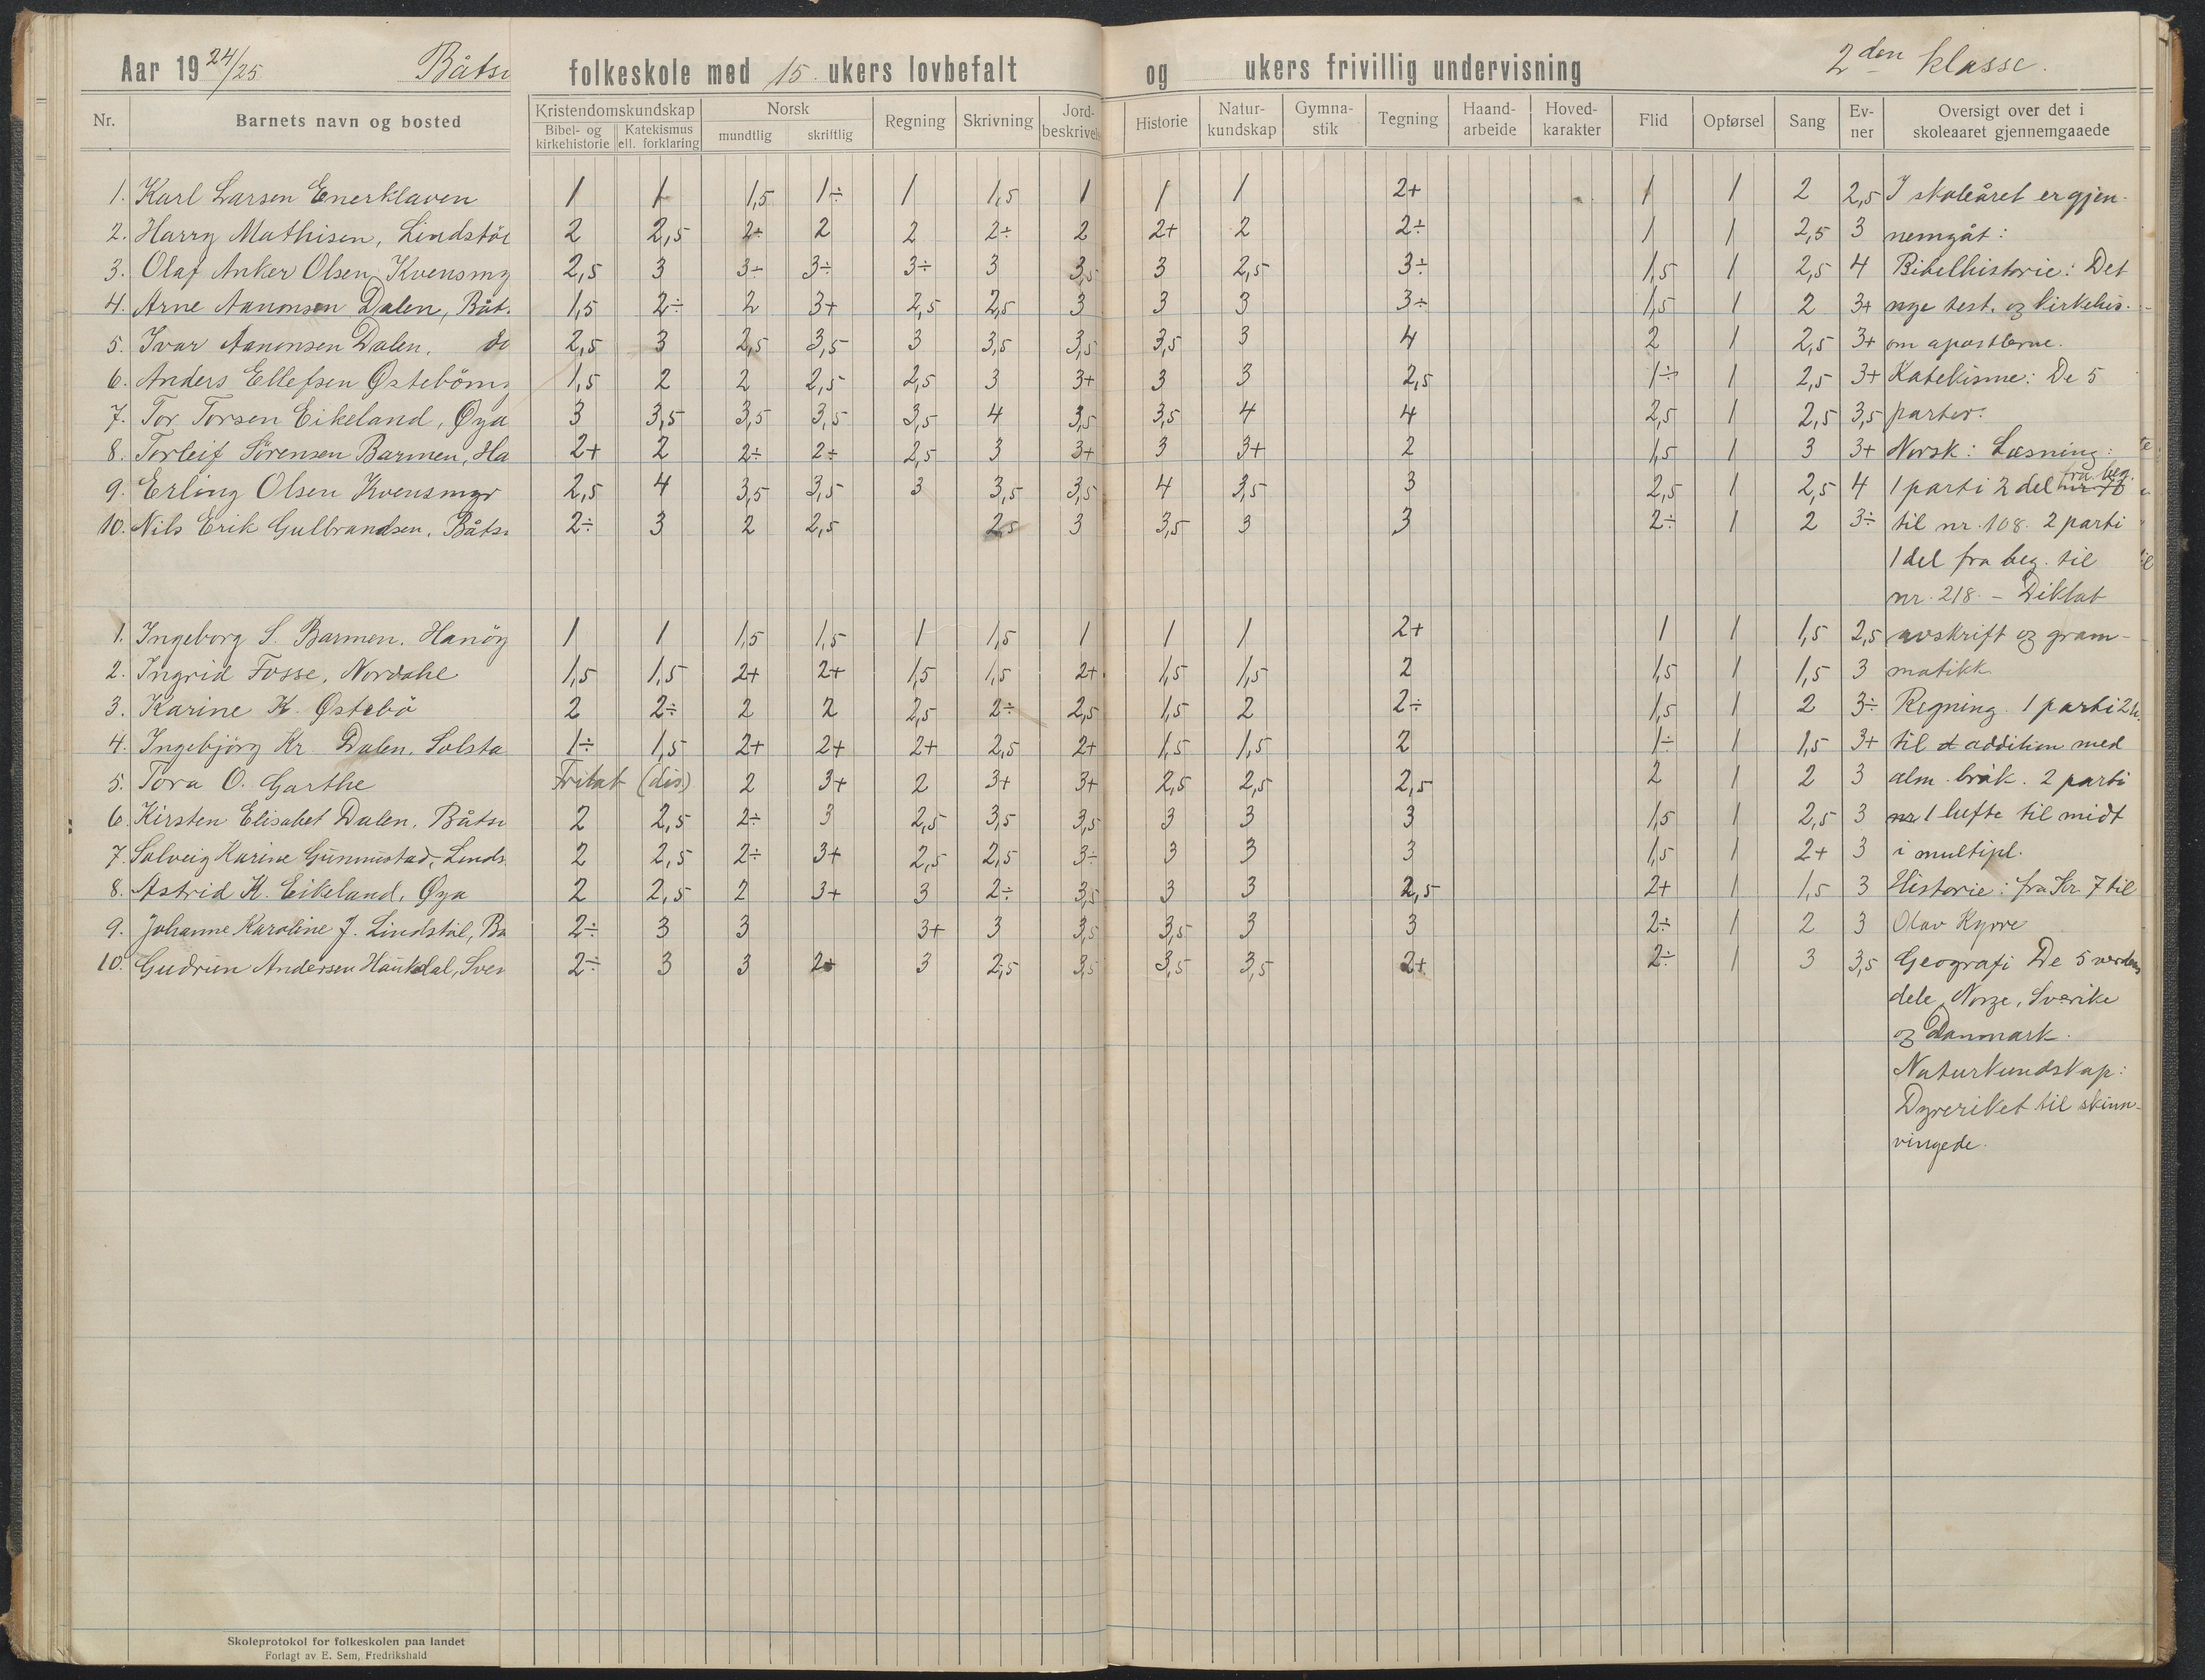 Aar 19 24/25 Båts folkeskole med 15 ukers lovbefalt og ukers frivillig undervisning 2den klasse.
Nr. Barnets navn og bosted Kristendomskundskap Bibel- og kirkehistorie Katekismus ell. forklaring Norsk mundtlig skriftlig Regning Skrivning Jord- beskrivel Historie Natur- kundskap Gymna- stik Tegning Haand- arbeide Hoved- karakter Flid Opførsel Sang Ev- ner Oversigt over det i skoleaaret gjennemgaaede
1. Karl Larsen Enerklaven 1 1 1,5 1÷ 1 1,5 1 1 1 2+ 1 1 2 2,5 I skoleåret er gjen-
2. Harry Mathisen, Lindstöl 2 2,5 2÷ 2 2 2÷ 2 2+ 2 2÷ 1 1 2,5 3 nemgåt:
3. Olaf Anker Olsen, Kvensmy 2,5 3 3÷ 3÷ 3÷ 3 3,5 3 2,5 3÷ 1,5 1 2,5 4 Bibelhistorie: Det
4. Arne Aanonsen Dalen, Båt. 1,5 2÷ 2 3+ 2,5 2,5 3 3 3 3÷ 1,5 1 2 3+ nye test. og kirkehis-
5. Ivar Aanonsen Dalen, do 2,5 3 2,5 3,5 3 3,5 3,5 3,5 3 4 2 1 2,5 3+ om apostlerne.
6. Anders Ellefsen Østeböm 1,5 2 2 2,5 2,5 3 3+ 3 3 2,5 1÷ 1 2,5 3+ Katekisme: De 5
7. Tor Torsen Eikeland, Øya 3 3,5 3,5 3,5 3,5 4 3,5 3,5 4 4 2,5 1 2,5 3,5 parter.
8. Torleif Sörensen Barmen, Ha 2+ 2 2÷ 2÷ 2,5 3 3+ 3 3+ 2 1,5 1 3 3+ Norsk: Læsning:
9. Erling Olsen Kvensmyr 2,5 4 3,5 3,5 3 3,5 3,5 4 3,5 3 2,5 1 2,5 4 1 parti 2 del fra beg.
10. Nils Erik Gulbrandsen, Båts 2÷ 3 2 2,5 2,5 3 3,5 3 3 2÷ 1 2 3÷ til nr. 108. 2 parti
1 del fra beg. til
nr. 218. – Diktat
1. Ingeborg S. Barmen, Hanöy 1 1 1,5 1,5 1 1,5 1 1 1 2+ 1 1 1,5 2,5 avskrift og gram-
2. Ingrid Fosse, Nordahl 1,5 1,5 2+ 2+ 1,5 1,5 2+ 1,5 1,5 2 1,5 1 1,5 3 matikk
3. Karine K. Østebö 2 2÷ 2 2 2,5 2÷ 2,5 1,5 2 2÷ 1,5 1 2 3÷ Regning. 1 parti 2 h.
4. Ingebjörg Kr. Dalen, Solsta 1÷ 1,5 2+ 2+ 2+ 2,5 2+ 1,5 1,5 2 1÷ 1 1,5 3+ til addition med
5. Tora O. Garthe Fritat (dis) 2 3+ 2 3+ 3+ 2,5 2,5 2,5 2 1 2 3 alm. bråk. 2 parti
6. Kirsten Elisabet Dalen, Båts 2 2,5 2÷ 3 2,5 3,5 3,5 3 3 3 1,5 1 2,5 3 1 hefte til midt
7. Solveig Karine Gunnustad, Linds 2 2,5 2÷ 3+ 2,5 2,5 3÷ 3 3 3 1,5 1 2+ 3 i multipl.
8. Astrid K. Eikeland, Øya 2 2,5 2 3+ 3 2÷ 3,5 3 3 2,5 2+ 1 1,5 3 Historie: fra Kr. 7 til
9. Johanne Karoline J. Lindstöl, Bå 2÷ 3 3 3+ 3 3,5 3,5 3 3 2÷ 1 2 3 Olav Kyrre
10. Gudrun Andersen Haukdal, Sven 2÷ 3 3 2+ 3 2,5 3,5 3,5 3,5 2+ 2÷ 1 3 3,5 Geografi De 5 verdens
dele, Norge, Sverike
og Danmark.
Naturkundskap:
Dyreriket til skinn-
vingede.
Skoleprotokol for folkeskolen paa landet
Forlagt av E. Sem, Fredrikshald